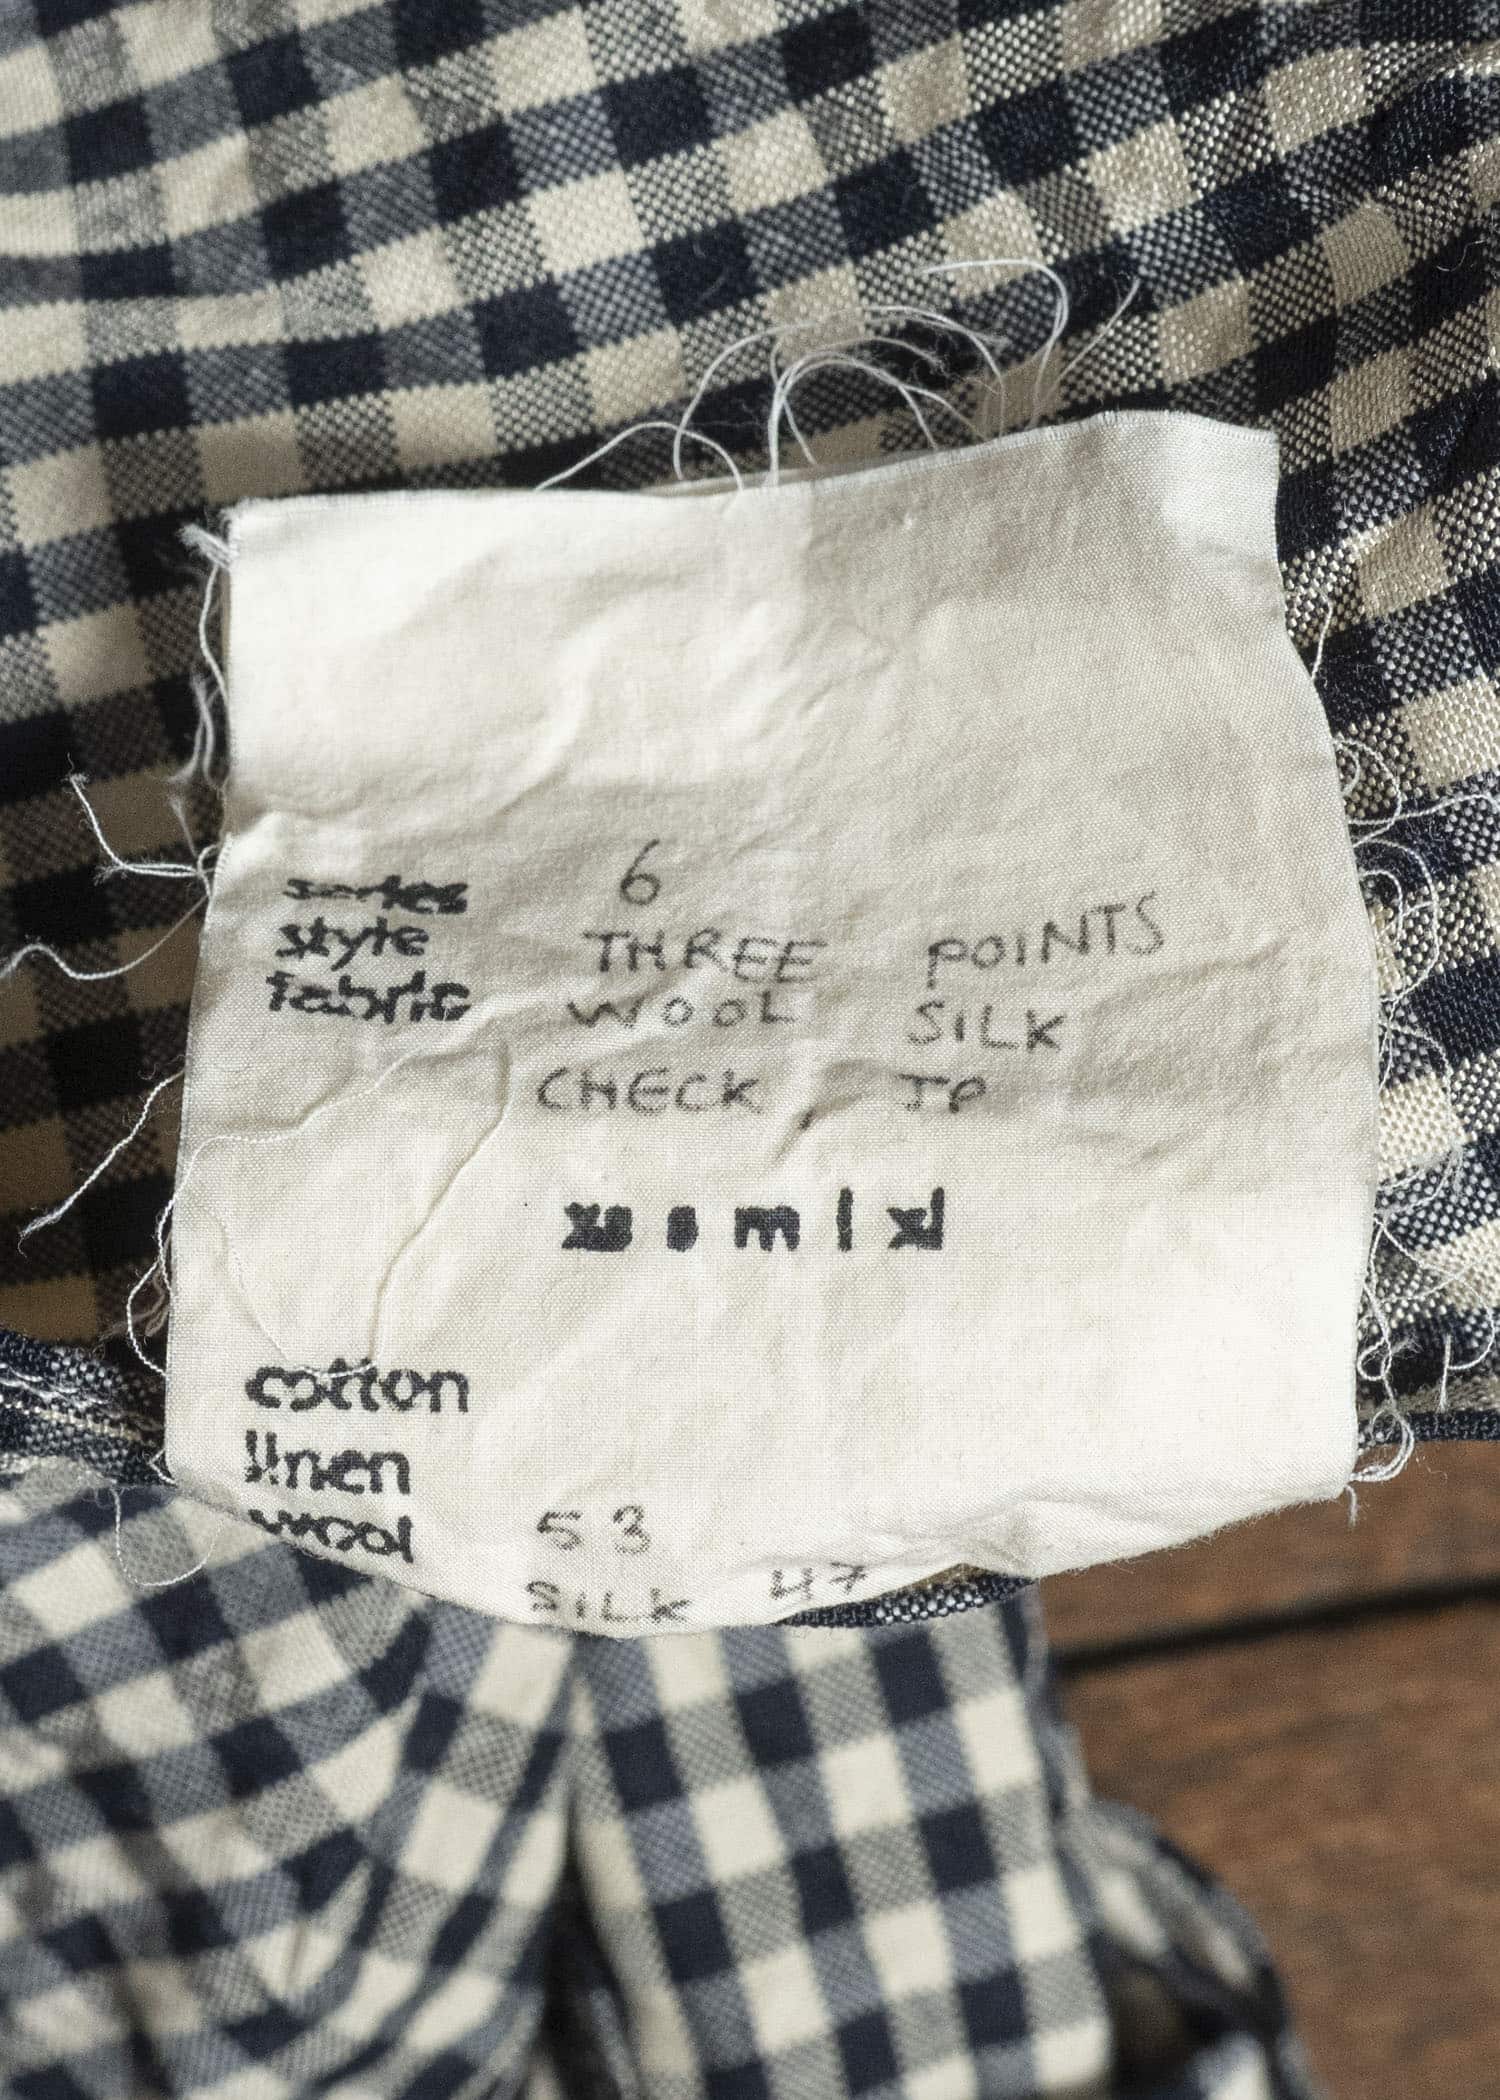 series 6
style THREE POINTS
fabric WOOL SILK
CHECK, JP
xs s m l xl
cotton
linen
wool 53
SILK 47